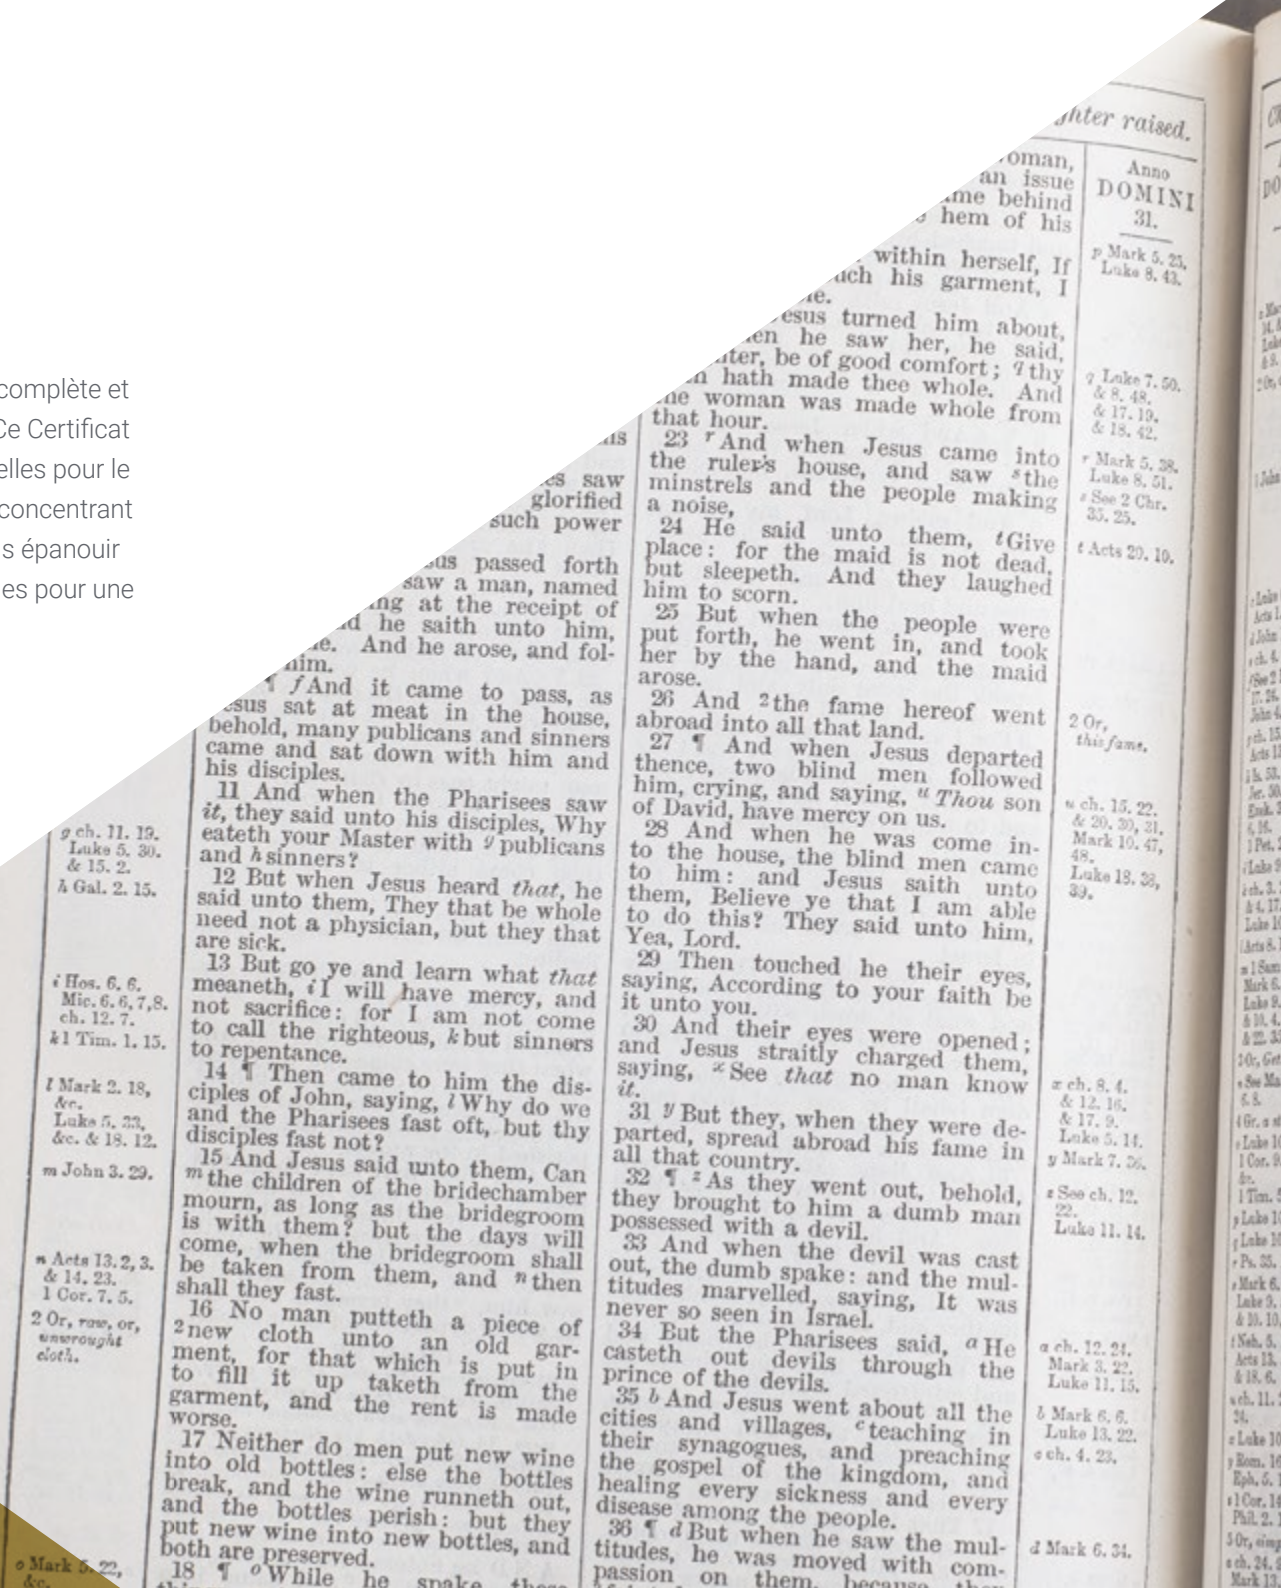 complète et
Ce Certificat
elles pour le
concentrant
s épanouir
es pour une
g ch. 11. 19.
Luke 5. 30.
& 15. 2.
h Gal. 2. 15.
i Hos. 6. 6.
Mic. 6. 6,7,8.
ch. 12. 7.
k 1 Tim. 1. 15.
l Mark 2. 18,
&c.
Luke 5. 33,
&c. & 18. 12.
m John 3. 29.
n Acts 13. 2, 3.
& 14. 23.
1 Cor. 7. 5.
2 Or, raw, or,
unwrought
cloth.
o Mark 5. 22,
&c.
saw
glorified
such power
passed forth
saw a man, named
at the receipt of
he saith unto him,
And he arose, and fol-
him.
¶ f And it came to pass, as
sat at meat in the house,
behold, many publicans and sinners
came and sat down with him and
his disciples.
11 And when the Pharisees saw
it, they said unto his disciples, Why
eateth your Master with g publicans
and h sinners?
12 But when Jesus heard that, he
said unto them, They that be whole
need not a physician, but they that
are sick.
13 But go ye and learn what that
meaneth, i I will have mercy, and
not sacrifice: for I am not come
to call the righteous, k but sinners
to repentance.
14 ¶ Then came to him the dis-
ciples of John, saying, l Why do we
and the Pharisees fast oft, but thy
disciples fast not?
15 And Jesus said unto them, Can
m the children of the bridechamber
mourn, as long as the bridegroom
is with them? but the days will
come, when the bridegroom shall
be taken from them, and n then
shall they fast.
16 No man putteth a piece of
2 new cloth unto an old gar-
ment, for that which is put in
to fill it up taketh from the
garment, and the rent is made
worse.
17 Neither do men put new wine
into old bottles: else the bottles
break, and the wine runneth out,
and the bottles perish: but they
put new wine into new bottles, and
both are preserved.
18 ¶ o While he spake these
raised.
an issue
behind
hem of his
within herself, If
his garment, I
turned him about,
he saw her, he said,
be of good comfort; q thy
hath made thee whole. And
woman was made whole from
that hour.
23 r And when Jesus came into
the ruler's house, and saw s the
minstrels and the people making
a noise,
24 He said unto them, t Give
place: for the maid is not dead,
but sleepeth. And they laughed
him to scorn.
25 But when the people were
put forth, he went in, and took
her by the hand, and the maid
arose.
26 And 2 the fame hereof went
abroad into all that land.
27 ¶ And when Jesus departed
thence, two blind men followed
him, crying, and saying, u Thou son
of David, have mercy on us.
28 And when he was come in-
to the house, the blind men came
to him: and Jesus saith unto
them, Believe ye that I am able
to do this? They said unto him,
Yea, Lord.
29 Then touched he their eyes,
saying, According to your faith be
it unto you.
30 And their eyes were opened;
and Jesus straitly charged them,
saying, x See that no man know
it.
31 y But they, when they were de-
parted, spread abroad his fame in
all that country.
32 ¶ z As they went out, behold,
they brought to him a dumb man
possessed with a devil.
33 And when the devil was cast
out, the dumb spake: and the mul-
titudes marvelled, saying, It was
never so seen in Israel.
34 But the Pharisees said, a He
casteth out devils through the
prince of the devils.
35 b And Jesus went about all the
cities and villages, c teaching in
their synagogues, and preaching
the gospel of the kingdom, and
healing every sickness and every
disease among the people.
36 ¶ d But when he saw the mul-
titudes, he was moved with com-
passion on them, because they
Anno
DOMINI
31.
p Mark 5. 25.
Luke 8. 43.
q Luke 7. 50.
& 8. 48.
& 17. 19.
& 18. 42.
r Mark 5. 38.
Luke 8. 51.
s See 2 Chr.
35. 25.
t Acts 20. 10.
2 Or,
this fame.
u ch. 15. 22.
& 20. 30, 31.
Mark 10. 47,
48.
Luke 18. 38,
39.
x ch. 8. 4.
& 12. 16.
& 17. 9.
Luke 5. 14.
y Mark 7. 36.
z See ch. 12.
22.
Luke 11. 14.
a ch. 12. 24.
Mark 3. 22.
Luke 11. 15.
b Mark 6. 6.
Luke 13. 22.
c ch. 4. 23.
d Mark 6. 34.